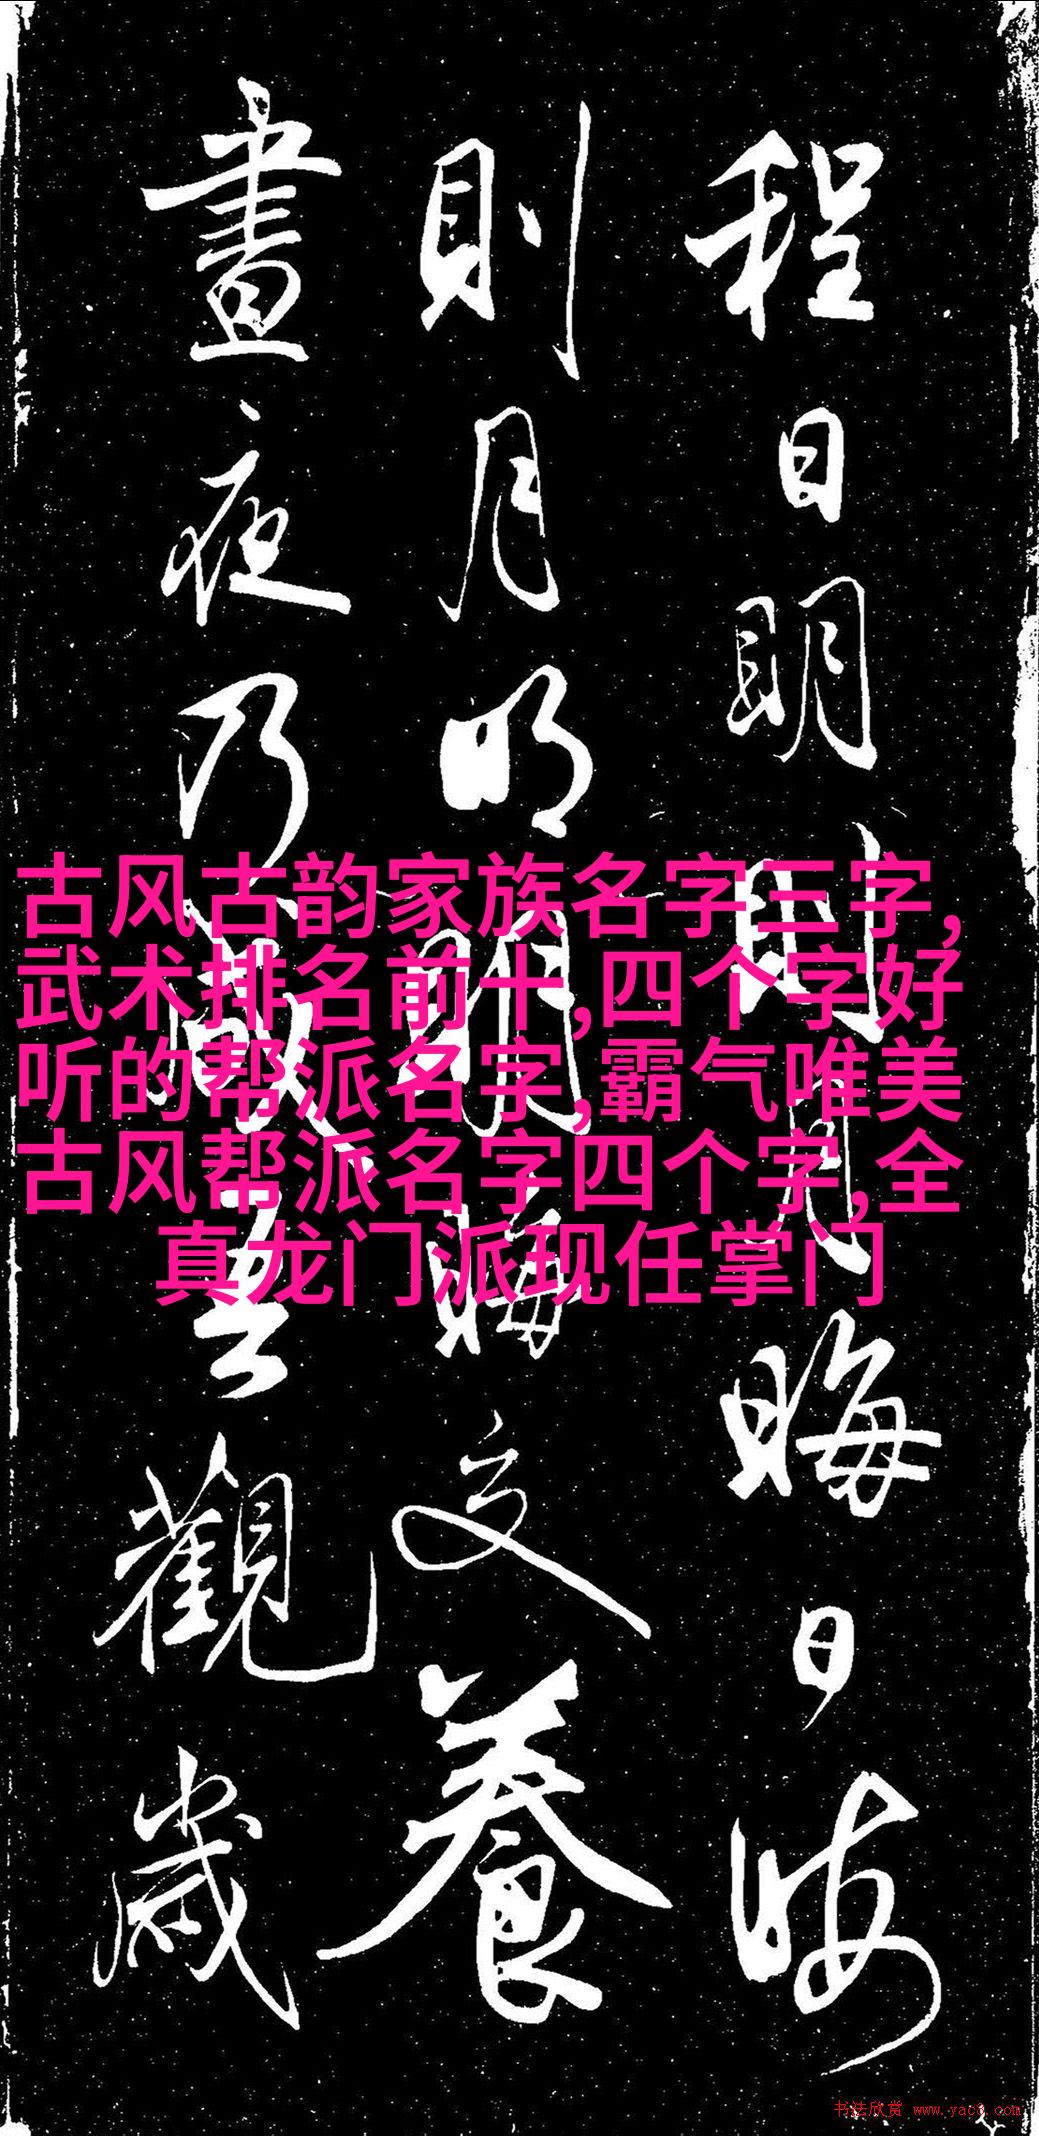 程日明則月晦日晦
則月明明晦交養
晝夜乃成觀歲
古风古韵家族名字三字,
武术排名前十,四个字好
听的帮派名字,霸气唯美
古风帮派名字四个字,全
真龙门派现任掌门
书法欣赏 www.yac8.com